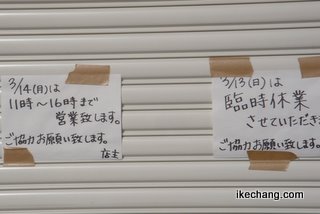 3/14(月)は
11時～16時まで
営業致します。
ご協力お願い致します。
店主
3/13(日)は
臨時休業
させていただきま
ご協力お願い致します。
ikechang.com